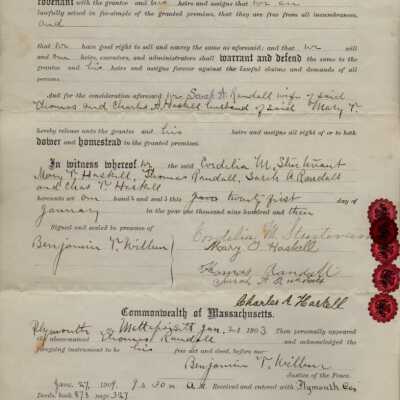 covenant with the grantee and his heirs and assigns that we are
lawfully seized in fee-simple of the granted premises, that they are free from all incumbrances,
and
that we have good right to sell and convey the same as aforesaid; and that we will
and our heirs, executors, and administrators shall warrant and defend the same to the
grantee and his heirs and assigns forever against the lawful claims and demands of all
persons.
And for the consideration aforesaid we Sarah A. Randall wife of said
Thomas and Charles A. Haskell husband of said Mary T.
hereby release unto the grantee and his heirs and assigns all right of or to both
dower and homestead in the granted premises.
In witness whereof we the said Cordelia M. Sturtevant
Mary T. Haskell, Thomas Randall, Sarah A. Randall
and Chas. A. Haskell
hereunto set our hand s and seal s this twenty first day of
January in the year one thousand nine hundred and three
Signed and sealed in presence of
Benjamin T. Wilbur
Cordelia M. Sturtevant
Mary T. Haskell
Thomas Randall
Sarah A. Randall
Charles A. Haskell
Commonwealth of Massachusetts.
Plymouth ss. Mattapoisett Jan. 21 1903 Then personally appeared
the abovenamed Thomas Randall and acknowledged the
foregoing instrument to be his free act and deed, before me—
Benjamin T. Wilbur
Justice of the Peace.
Jany. 27, 1909, 9 h 30 m A.M. Received and entered with Plymouth Co.
Deeds, book 878 page 327